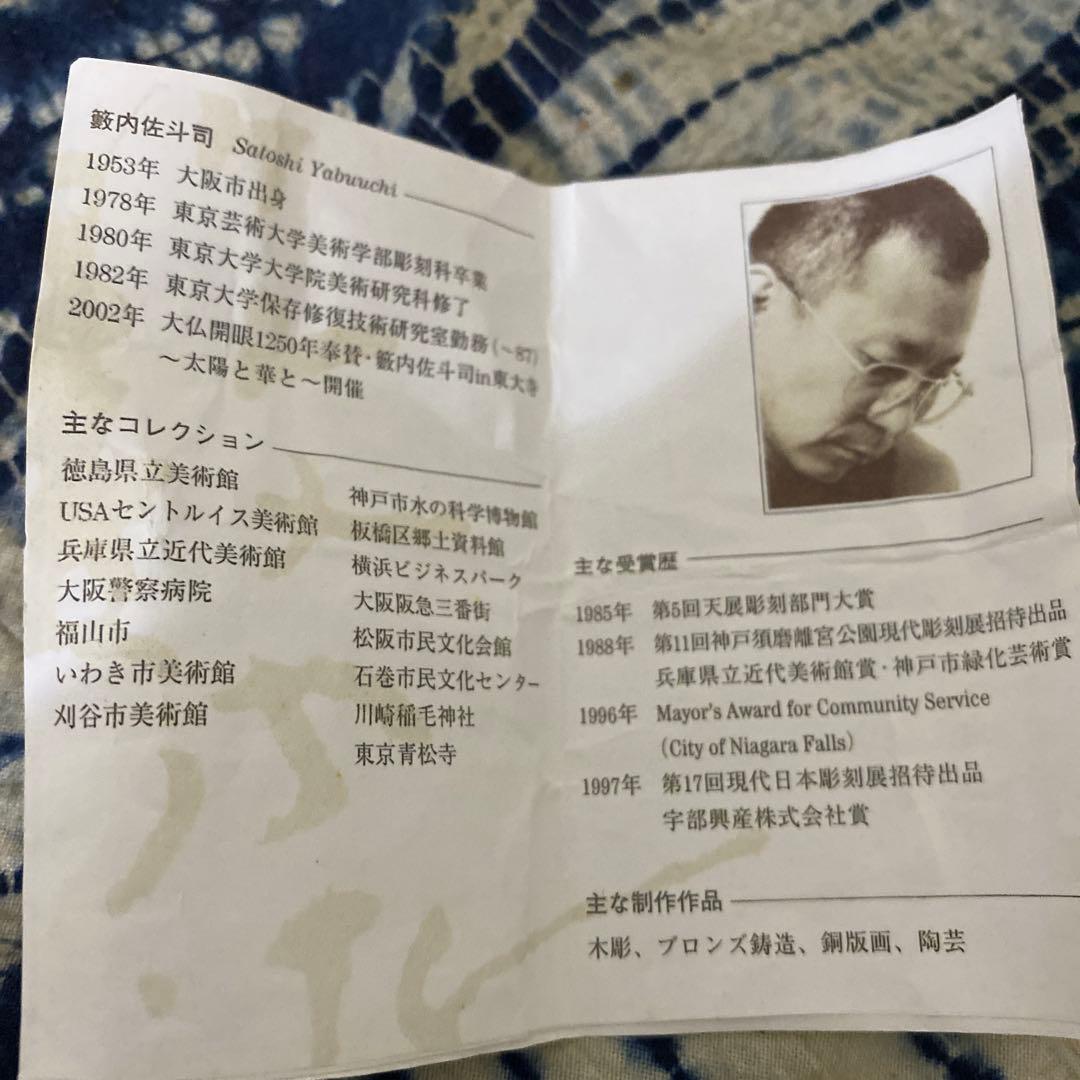 籔内佐斗司 Satoshi Yabuuchi
1953年 大阪市出身
1978年 東京芸術大学美術学部彫刻科卒業
1980年 東京大学大学院美術研究科修了
1982年 東京大学保存修復技術研究室勤務(~87)
2002年 大仏開眼1250年奉賛・籔内佐斗司in東大寺
~太陽と華と~開催
主なコレクション
徳島県立美術館
USAセントルイス美術館
兵庫県立近代美術館
大阪警察病院
福山市
いわき市美術館
刈谷市美術館
神戸市水の科学博物館
板橋区郷土資料館
横浜ビジネスパーク
大阪阪急三番街
松阪市民文化会館
石巻市民文化センター
川崎稲毛神社
東京青松寺
主な受賞歴
1985年 第5回天展彫刻部門大賞
1988年 第11回神戸須磨離宮公園現代彫刻展招待出品
兵庫県立近代美術館賞・神戸市緑化芸術賞
1996年 Mayor's Award for Community Service
(City of Niagara Falls)
1997年 第17回現代日本彫刻展招待出品
宇部興産株式会社賞
主な制作作品
木彫、ブロンズ鋳造、銅版画、陶芸